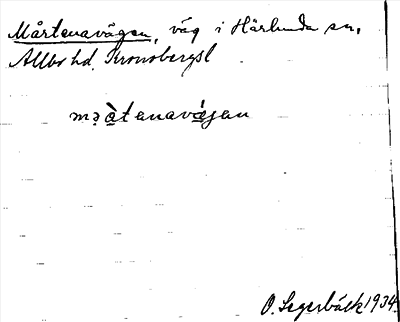 Mårtenavägen, väg i Härlunda sn,
Allbo hd. Kronobergsl
O. Segerbäck 1934.